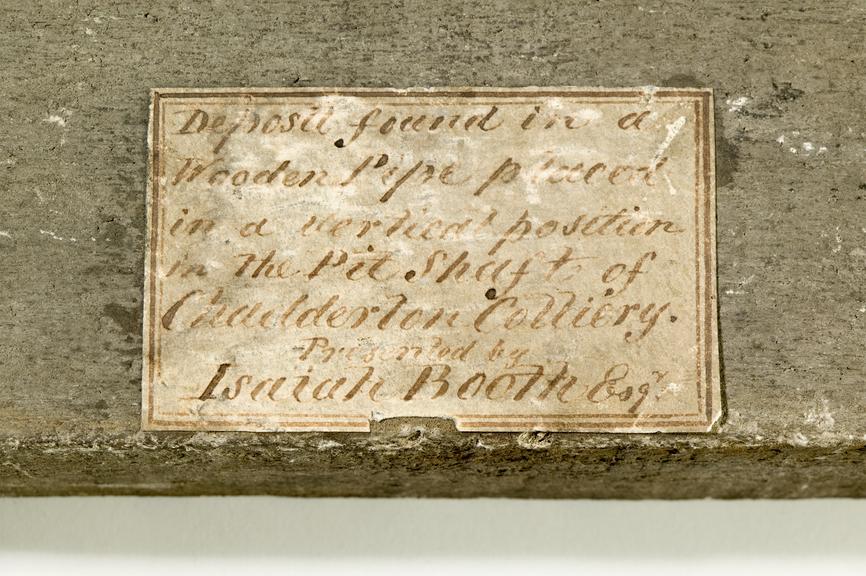 Deposit found in a
Wooden Pipe placed
in a vertical position
in the Pit Shaft of
Chadderton Colliery.
Presented by
Isaiah Booth Esqr